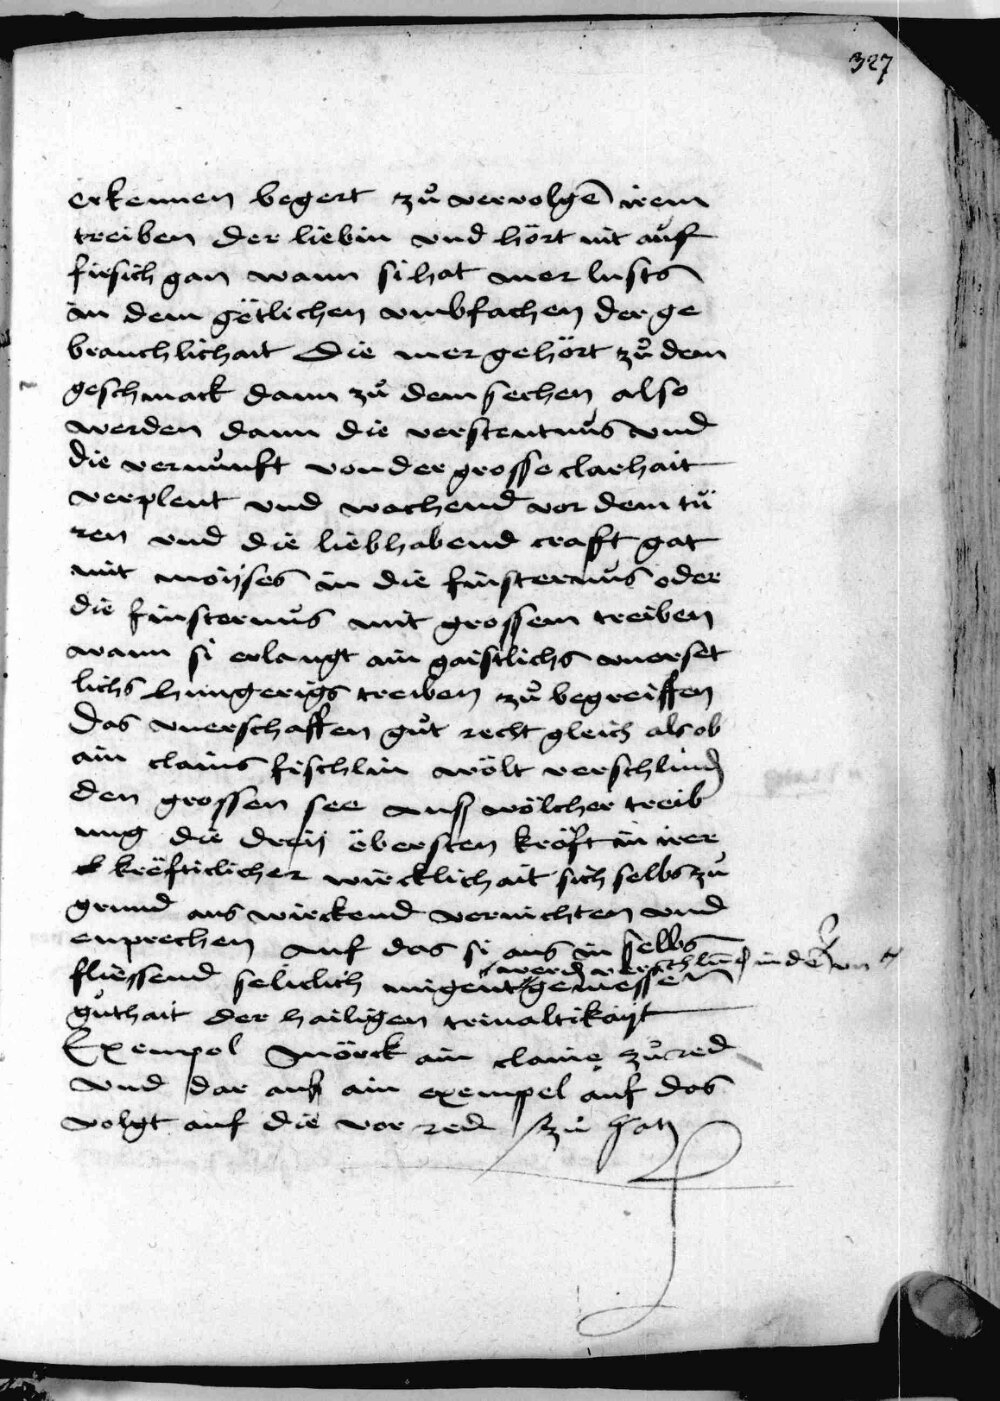 327
erkennen begert zů vervolgē irem
treiben der liebin vnd hört nit auf
fürsich gan wann si hat mer lusts
in dem götlichen vmbfachen der ge
brauchlichait die mer gehört zů dem
geschmack dann zů dem sechen also
werden dann die verstentnus vnd
die vernunft von der grosse clarhait
verplent vnd wachend vor dem tü
ren vnd die liebhabend crafft gat
mit moÿses in die finsternus oder
die finsternus mit grossem treiben
wann si erlangt ain gaistlichs vnerset
lichs hungerigs treiben zů begreiffen
das vnerschaffen gůt recht gleich als ob
ain clains fischlin wölt verschlind
den grossen see auss wölcher treib
ung die dreÿ öbersten kröft in irer
kröfticlicher würcklichait sich selbs zů
grund aus würckend vernichten vnd
enprechen auf das si aus in selbs
werd verschlund in dē vn
fliessend seliclich gemessen
gůthait der hailigen trinaltikaÿt
Exempel Mörck ain claine zůred
vnd dar auß ain exempel auf das
volgt auf die vor red